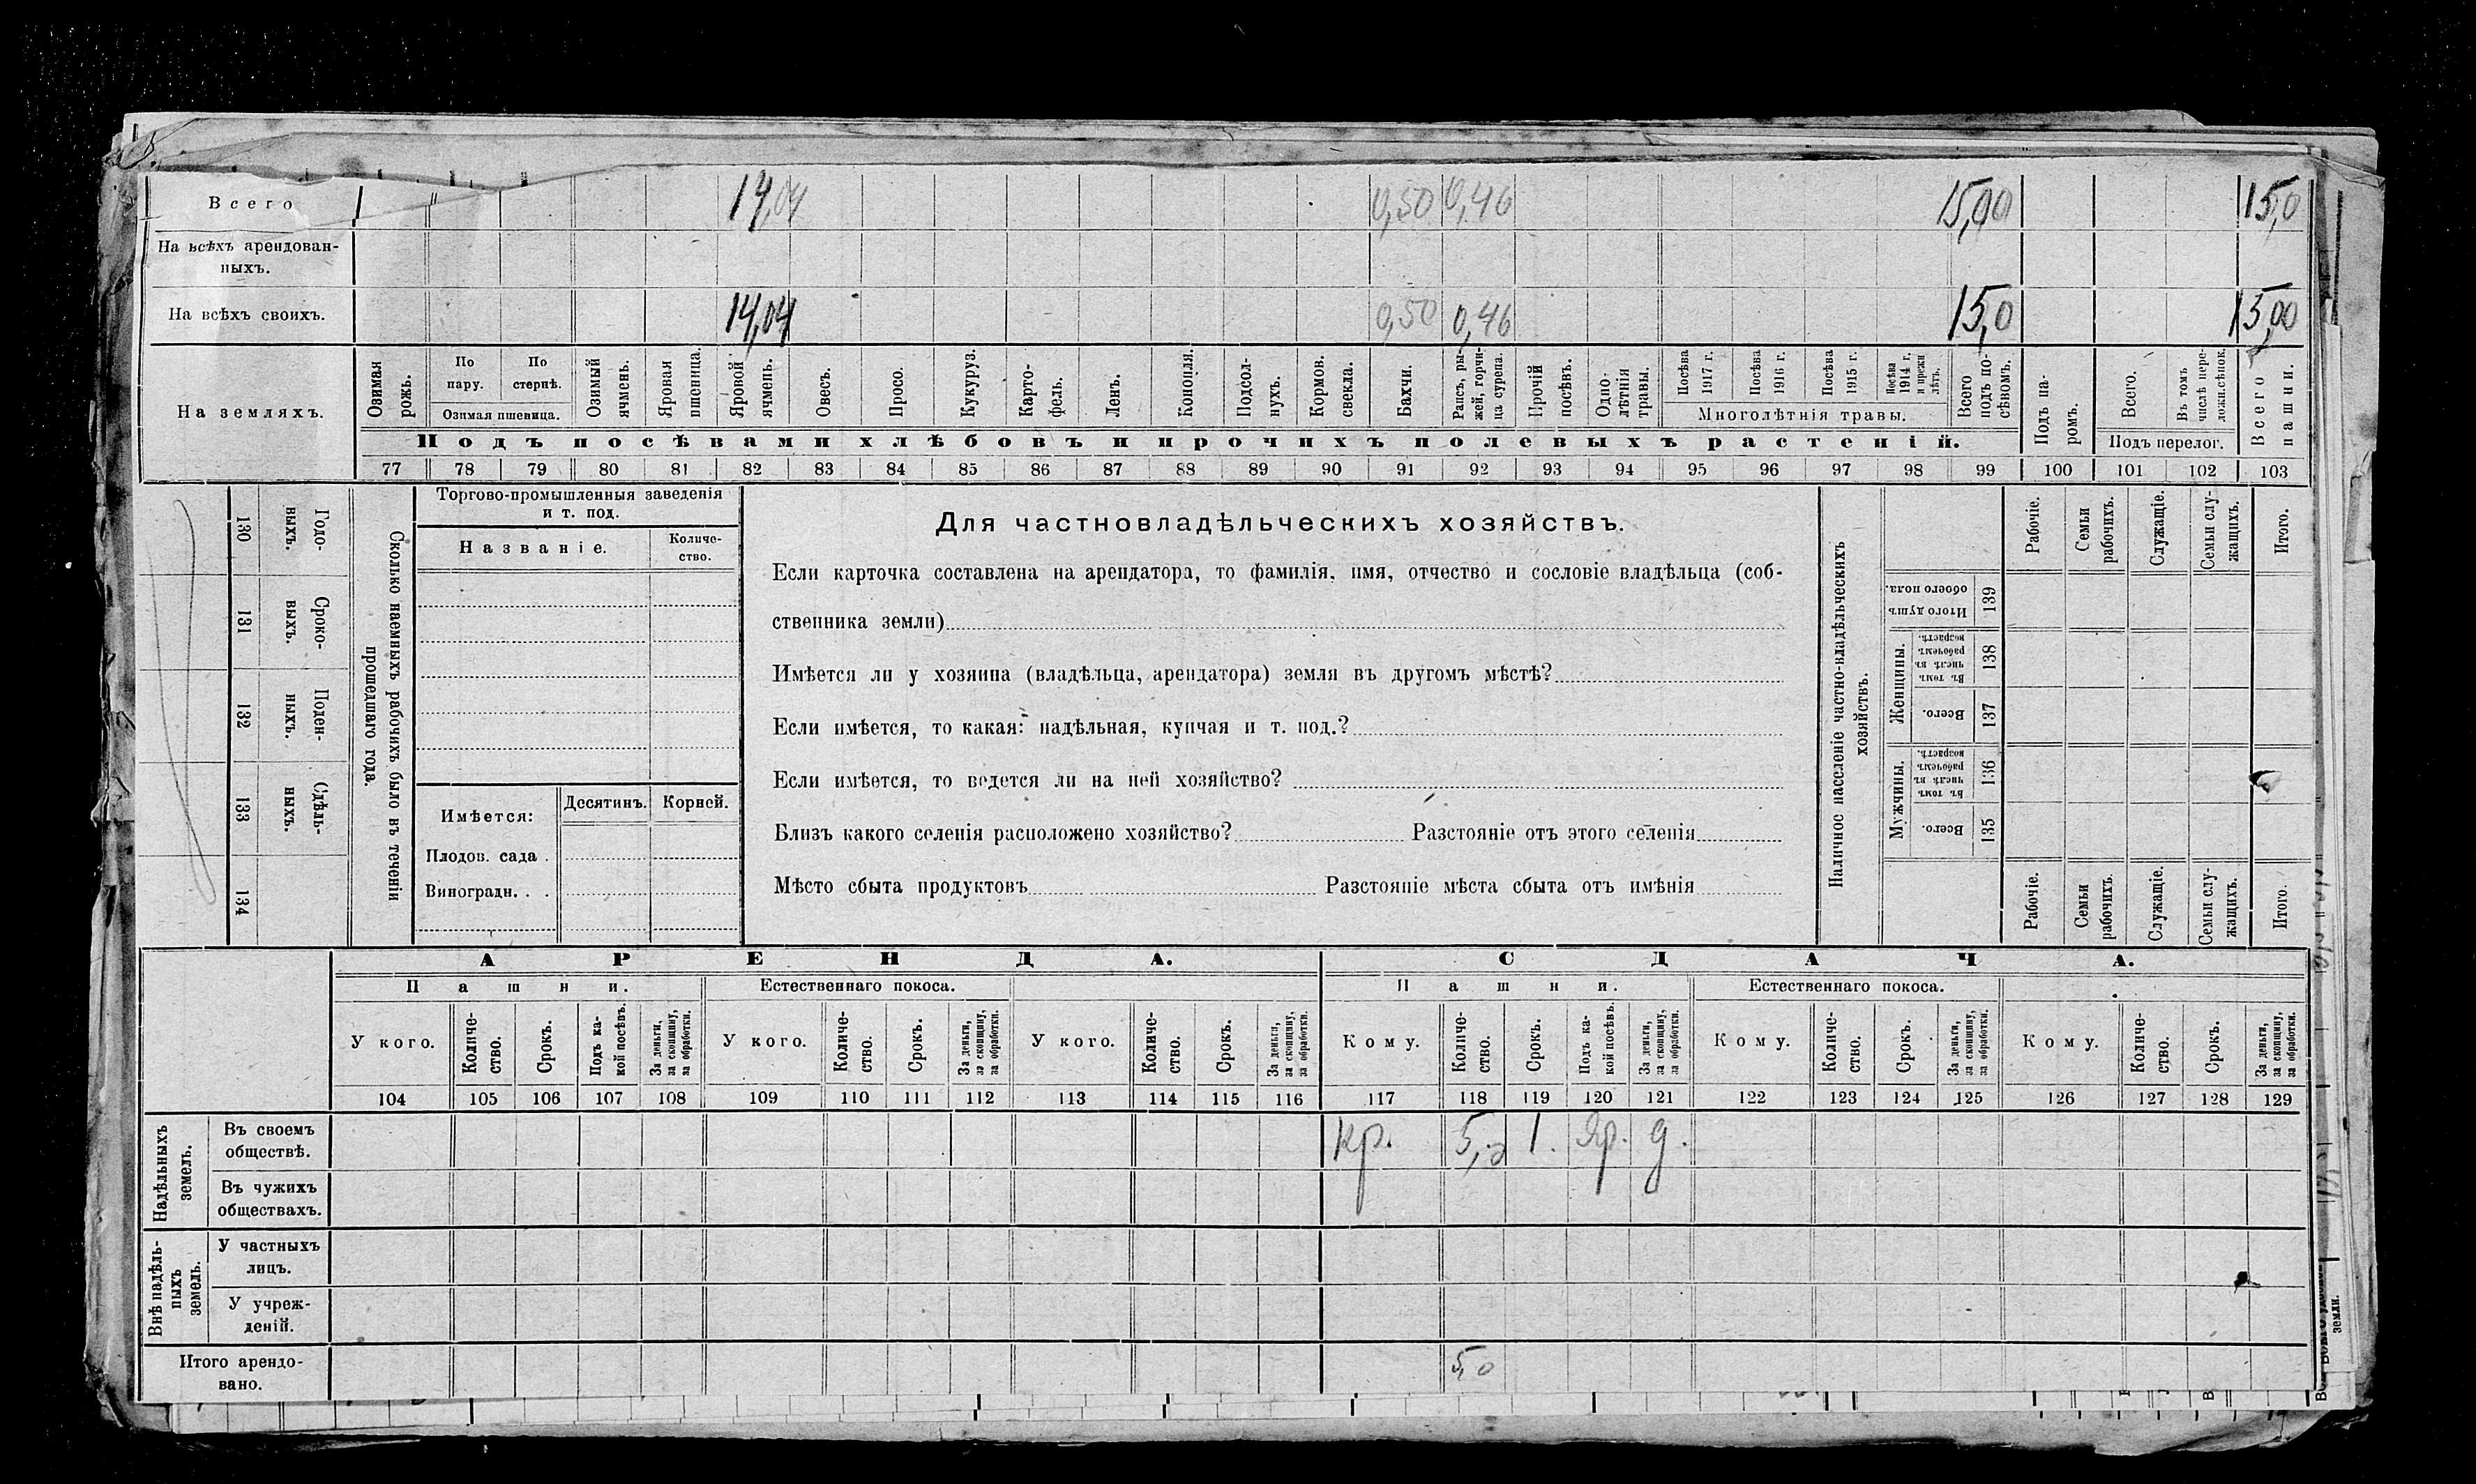 Всего 14,04 0,50 0,46 15,00 15,0
На всѣхъ арендован-
ныхъ.
На всѣхъ своихъ. 14,04 0,50 0,46 15,0 15,00
На земляхъ.
Озимая рожь.
По пару.
По стернѣ.
Озимая пшеница.
Озимый ячмень.
Яровая пшеница.
Яровой ячмень.
Овесъ.
Просо.
Кукуруз.
Карто-
фель.
Ленъ.
Конопля.
Подсол-
нухъ.
Кормов.
свекла.
Бахчи.
Рапсъ, ры-
жей, горчи-
ца сурепа.
Прочій
посѣвъ.
Одно-
лѣтнія
травы.
Посѣва
1917 г.
Посѣва
1916 г.
Посѣва
1915 г.
Посѣва
1914 г.
и прежн
лѣтъ.
Многолѣтнія травы.
Всего
подъ по-
сѣвомъ.
Подъ па-
ромъ.
Всего.
Въ томъ
числѣ пере-
ложн.сѣнок.
Подъ перелог.
Всего
пашни.
Подъ посѣвами хлѣбовъ и прочихъ полевыхъ растеній.
77 78 79 80 81 82 83 84 85 86 87 88 89 90 91 92 93 94 95 96 97 98 99 100 101 102 103
130 Годо-
выхъ.
131 Сроко-
выхъ.
132 Поден-
ныхъ.
133 Сдѣль-
ныхъ.
134
Сколько наемныхъ рабочихъ было въ теченіи
прошедшаго года.
Торгово-промышленныя заведенія
и т. под.
Названіе.
Количе-
ство.
Имѣется:
Десятинъ.
Корней.
Плодов. сада .
Виноградн. . .
Для частновладѣльческихъ хозяйствъ.
Если карточка составлена на арендатора, то фамилія, имя, отчество и сословіе владѣльца (соб-
ственника земли)
Имѣется ли у хозяина (владѣльца, арендатора) земля въ другомъ мѣстѣ?
Если имѣется, то какая: надѣльная, купчая и т. под.?
Если имѣется, то ведется ли на ней хозяйство?
Близъ какого селенія расположено хозяйство? Разстояніе отъ этого селенія
Мѣсто сбыта продуктовъ Разстояніе мѣста сбыта отъ имѣнія
Наличное населеніе частно-владѣльческихъ
хозяйствъ.
Рабочіе.
Семьи
рабочихъ.
Служащіе.
Семьи слу-
жащихъ.
Итого.
Итого душъ
обоего пола.
139
Женщины.
Въ томъ
числѣ въ
рабочемъ
возрастѣ.
138
Всего.
137
Мужчины.
Въ томъ
числѣ въ
рабочемъ
возрастѣ.
136
Всего.
135
Рабочіе.
Семьи
рабочихъ.
Служащіе.
Семьи слу-
жащихъ.
Итого.
АРЕНДА. СДАЧА.
Пашни. Естественнаго покоса. Пашни. Естественнаго покоса.
У кого.
Количе-
ство.
Срокъ.
Подъ ка-
кой посѣвъ.
За деньги,
за скопщину,
за обработки.
У кого.
Количе-
ство.
Срокъ.
За деньги,
за скопщину,
за обработки.
У кого.
Количе-
ство.
Срокъ.
За деньги,
за скопщину,
за обработки.
Кому.
Количе-
ство.
Срокъ.
Подъ ка-
кой посѣвъ.
За деньги,
за скопщину,
за обработки.
Кому.
Количе-
ство.
Срокъ.
За деньги,
за скопщину,
за обработки.
Кому.
Количе-
ство.
Срокъ.
За деньги,
за скопщину,
за обработки.
104 105 106 107 108 109 110 111 112 113 114 115 116 117 118 119 120 121 122 123 124 125 126 127 128 129
Надѣльныхъ
земель.
Въ своемъ
обществѣ.
кр. 5,0 1. яр. д.
Въ чужихъ
обществахъ.
Внѣ надѣль-
ныхъ
земель.
У частныхъ
лицъ.
У учреж-
деній.
Итого арендо-
вано.
5,0
земли.